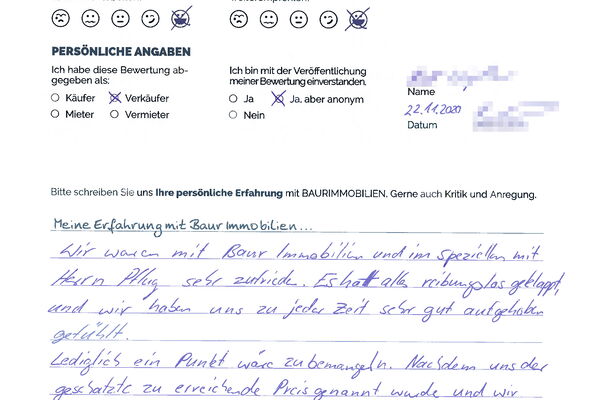 PERSÖNLICHE ANGABEN
Ich habe diese Bewertung ab-
gegeben als:
Käufer
Verkäufer
Mieter
Vermieter
Ich bin mit der Veröffentlichung
meiner Bewertung einverstanden.
Ja
Ja, aber anonym
Nein
Name
22.11.2020
Datum
Bitte schreiben Sie uns Ihre persönliche Erfahrung mit BAURIMMOBILIEN. Gerne auch Kritik und Anregung.
Meine Erfahrung mit Baur Immobilien...
Wir waren mit Baur Immobilien und im speziellen mit
Herrn Pflug sehr zufrieden. Es hat alles reibungslos geklappt,
und wir haben uns zu jeder Zeit sehr gut aufgehoben
gefühlt.
Lediglich ein Punkt wäre zu bemängeln. Nachdem uns der
geschätzte zu erreichende Preis genannt wurde und wir